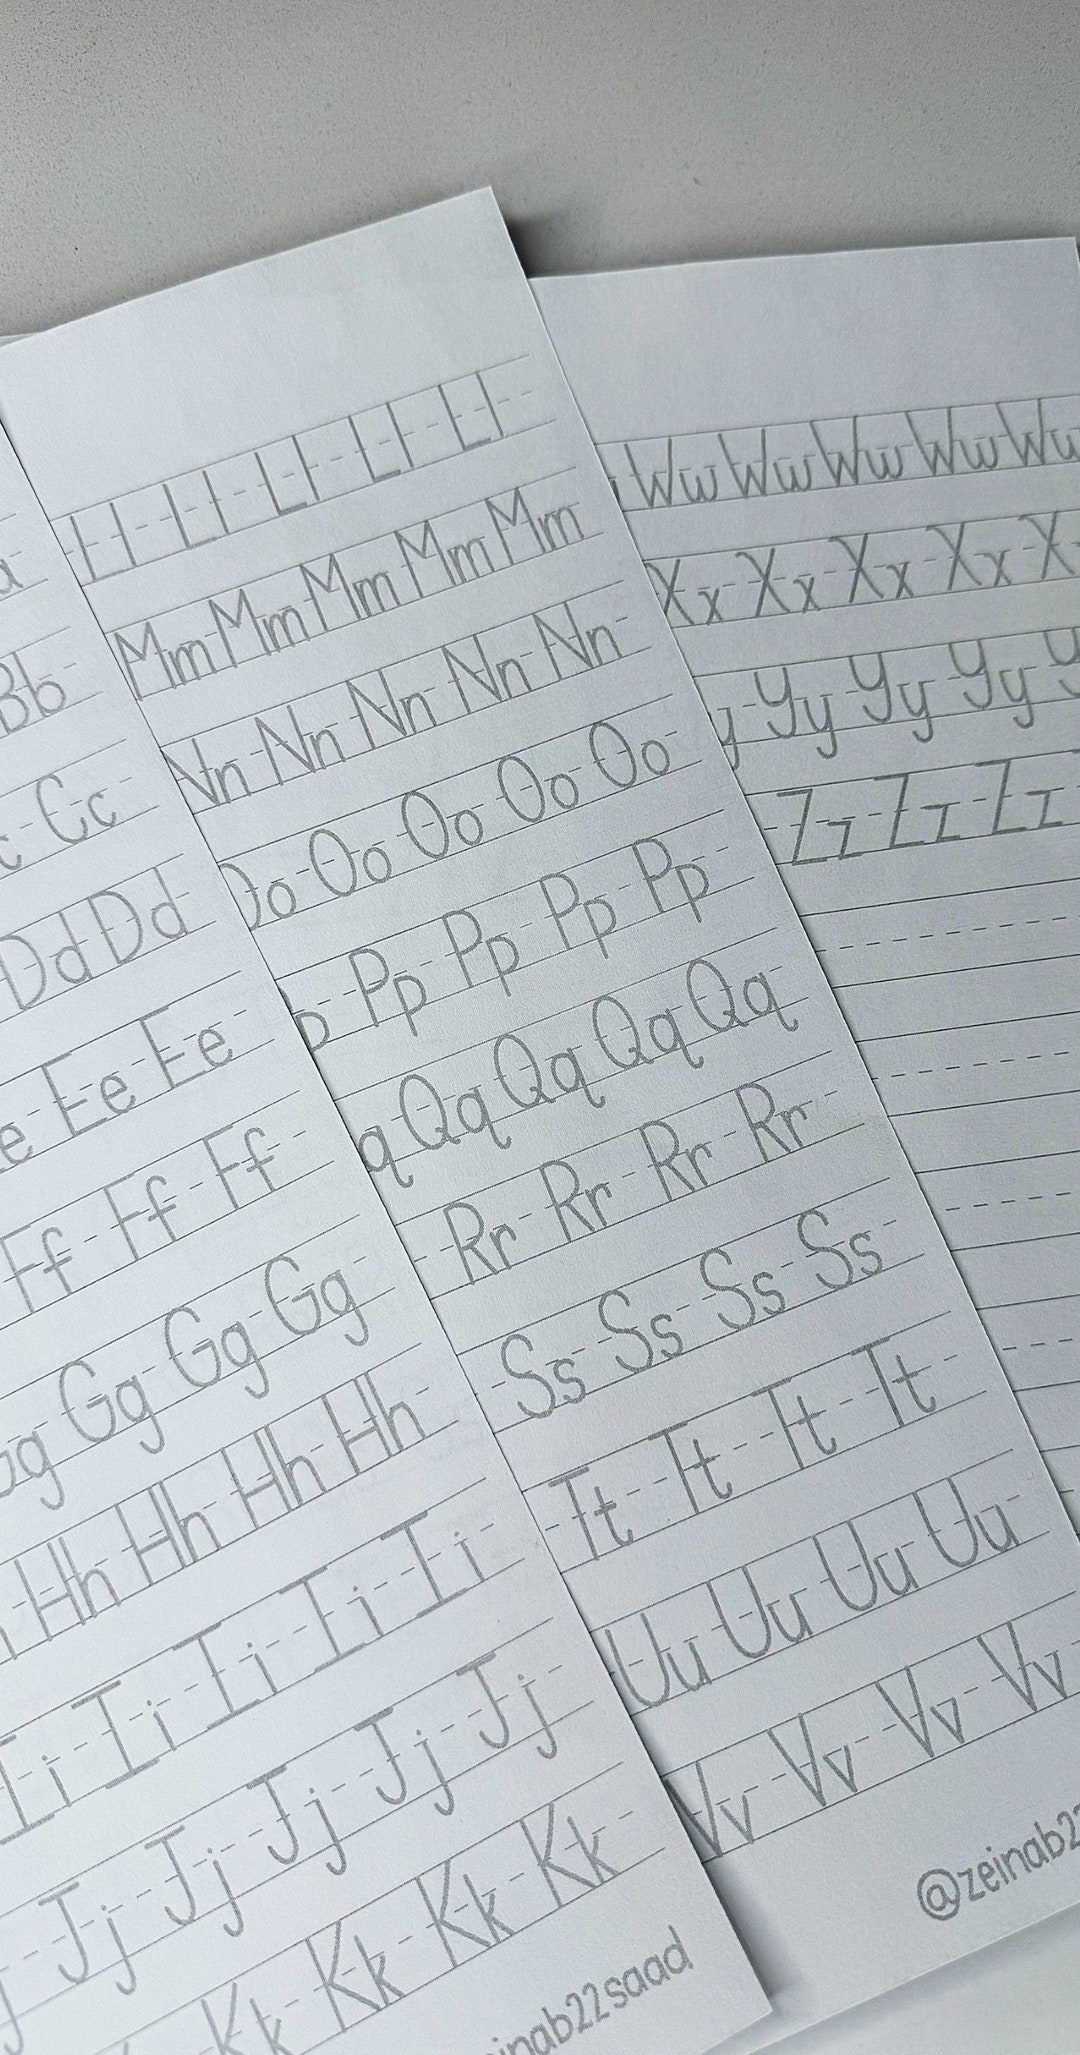 a
Bb
c Cc
Dd Dd
e Ee Ee
Ff Ff Ff
g Gg Gg Gg
Hh Hh Hh Hh
Ii Ii Ii Ii Ii
j Jj Jj Jj Jj Jj
Kk Kk Kk Kk
inab22saad
Ll Ll Ll Ll Ll
Mm Mm Mm Mm Mm
Nn Nn Nn Nn Nn
Oo Oo Oo Oo Oo
p Pp Pp Pp Pp
q Qq Qq Qq Qq
Rr Rr Rr Rr
Ss Ss Ss Ss
Tt Tt Tt Tt
Uu Uu Uu Uu
Vv Vv Vv Vv
@zeinab22
Ww Ww Ww Ww Ww
Xx Xx Xx Xx X
y Yy Yy Yy Y
Zz Zz Zz